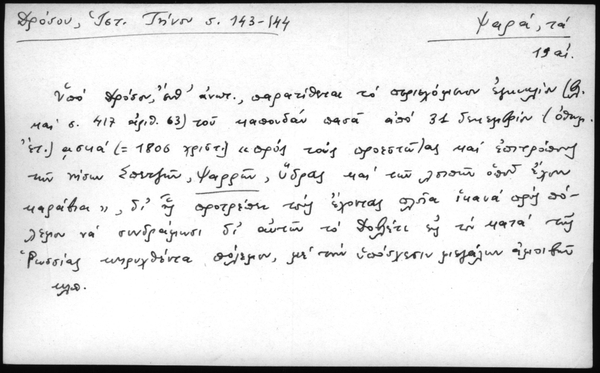 Δρόσου, Ἱστ. Τήνου σ. 143-144
Ψαρά, τά
19 αἰ.
Ὑπό Δρόσου, ἔνθ' ἀνωτ., παρατίθεται τό περιεχόμενον ἐγκυκλίου (βλ.
καί σ. 417 ἀριθ. 63) τοῦ καπουδάν πασᾶ ἀπό 31 δεκεμβρίου (ὀθωμ.
ἔτ.) ασκά (= 1806 χριστ.) «πρός τούς προεστῶτας καί ἐπιτρόπους
τῶν νήσων Σπετζῶν, Ψαρρῶν, Ὕδρας καί τῶν λοιπῶν ὁποῦ ἔχουν
καράβια», δι' ἧς προτρέπει τούς ἔχοντας πλοῖα ἱκανά πρός πό-
λεμον νά συνδράμωσι δι' αὐτῶν τό Δοβλέτι εἰς τόν κατά τῆς
Ῥωσσίας κηρυχθέντα πόλεμον, μέ τήν ὑπόσχεσιν μεγάλων ἀμοιβῶν
κλπ.